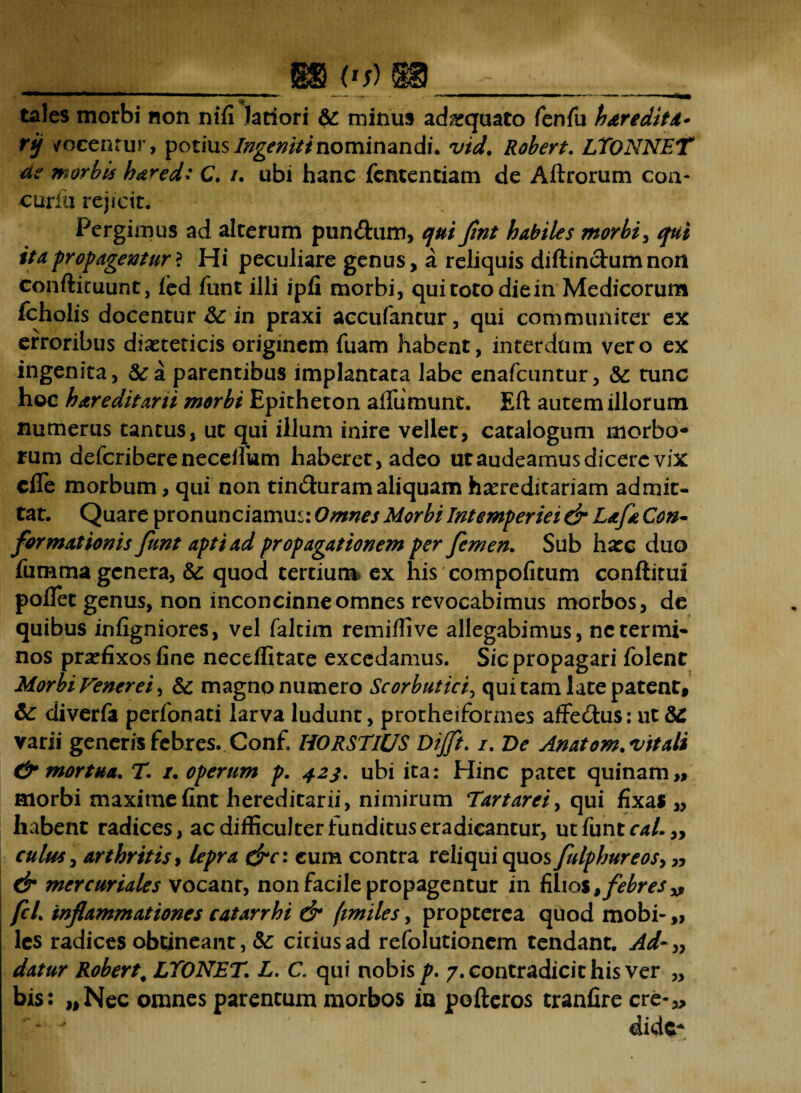 (15)
tales morbi non nisi latiori & minus adæquato sensu hæredita-
rij vocentur, potius Ingeniti nominandi. vid. Robert. LYONNET
de morbis hæred: C. 1. ubi hanc sententiam de Astrorum con-
cursu rejicit.
Pergimus ad alterum punctum, qui sint habiles morbi, qui
ita propagentur? Hi peculiare genus, à reliquis distinctum non
constituunt, sed sunt illi ipsi morbi, qui toto die in Medicorum
scholis docentur & in praxi accusantur, qui communiter ex
erroribus diæteticis originem suam habent, interdum vero ex
ingenita, & à parentibus implantata labe enascuntur, & tunc
hoc hæreditarii morbi Epitheton assumunt. Est autem illorum
numerus tantus, ut qui illum inire vellet, catalogum morbo-
rum describere necessum haberet, adeo ut audeamus dicere vix
esse morbum, qui non tincturam aliquam hæreditariam admit-
tat. Quare pronunciamus: Omnes Morbi Intemperiei & Læsæ Con-
formationis sunt apti ad propagationem per semen. Sub hæc duo
summa genera, & quod tertium ex his compositum constitui
posset genus, non inconcinne omnes revocabimus morbos, de
quibus insigniores, vel saltim remissive allegabimus, ne termi-
nos præfixos sine necessitate excedamus. Sic propagari solent
Morbi Venerei, & magno numero Scorbutici, qui tam late patent,
& diversa personati larva ludunt, protheiformes affectus: ut &
varii generis febres. Conf. HORSTIUS Disst. 1. De Anatom. vitali
& mortua. T. 1. operum p. 423. ubi ita: Hinc patet quinam „
morbi maxime sint hereditarii, nimirum Tartarei, qui fixas „
habent radices, ac difficulter funditus eradicantur, ut sunt cal- „
culus, arthritis, lepra &c: cum contra reliqui quos sulphureos, „
& mercuriales vocant, non facile propagentur in filios, febres „
scl. inflammationes catarrhi & similes, propterea quod mobi- „
les radices obtineant, & citius ad resolutionem tendant. Ad- „
datur Robert. LYONET. L. C. qui nobis p. 7. contradicit his ver „
bis: „Nec omnes parentum morbos in posteros transire cre- „
dide-